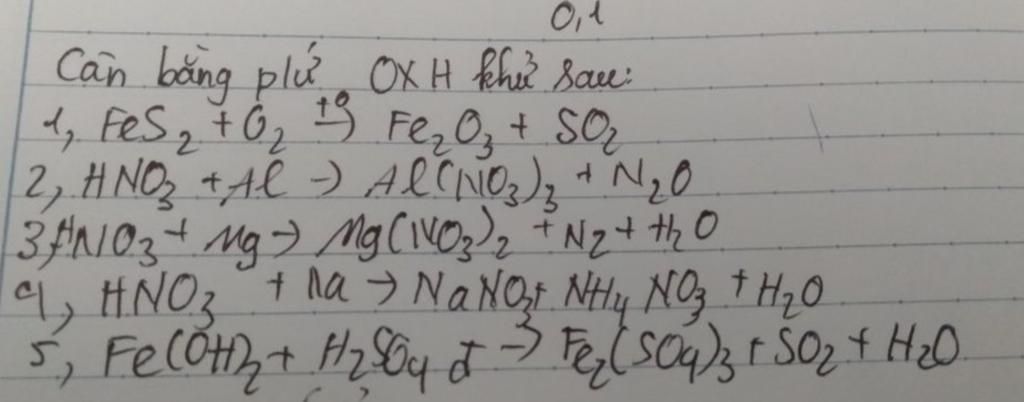 0,1
Cân bằng plứ OXH khử sau:
1, FeS₂ + O₂ →(t⁰) Fe₂O₃ + SO₂
2, HNO₃ + Al → Al(NO₃)₃ + N₂O
3, HNO₃ + Mg → Mg(NO₃)₂ + N₂ + H₂O
4, HNO₃ + Na → NaNO₃ + NH₄NO₃ + H₂O
5, Fe(OH)₂ + H₂SO₄ đ → Fe₂(SO₄)₃ + SO₂ + H₂O